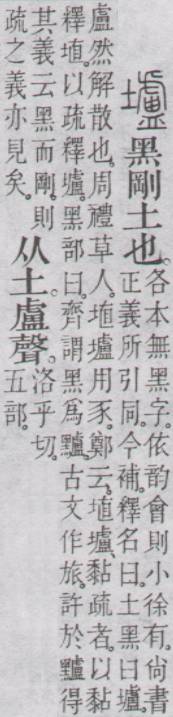 壚黑剛土也。各本無黑字。依韵會則小徐有。尚書
正義所引同。今補。釋名曰。土黑曰壚。
盧然解散也。周禮草人。埴壚用豕。鄭云。埴壚、黏疏者。以黏
釋埴。以疏釋壚。黑部曰。齊謂黑爲黸。古文作旅。許於黸得
其義云黑而剛。則
疏之義亦見矣。
从土盧聲。洛乎切。
五部。